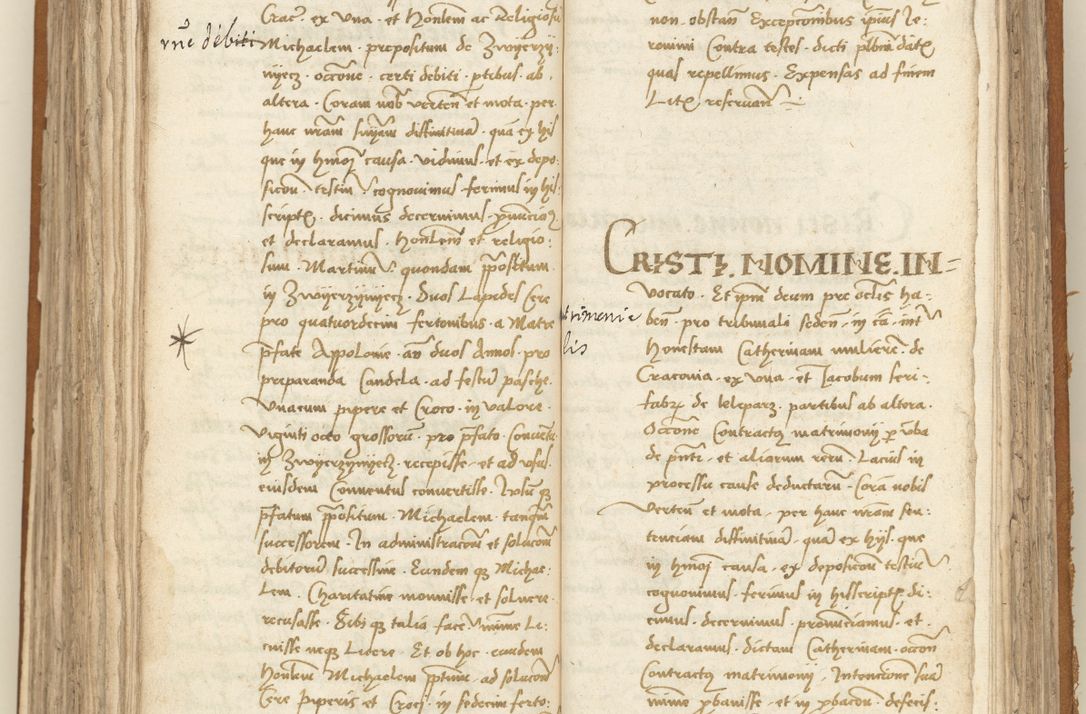 Crac̄. ex vna. et Honlem ac Religiosū
Michaelem. prepositum de Zwijerzy-
nyecz. occōne. certi debiti. ptibus ab.
altera. Coram nob̄ verten̄ et mota. per
hanc nr̄am sn̄iam diffinitiuā. quā ex his
que in hmōi causa. vidimus. et ex depo-
sicon̄. testiū. cognouimus. ferimus in his
script̄. dicimus decernimus. pnūciaɜ
et declaramus. Honlem̄ et religio-
sum. Martinū. quondam ppositum
in Zwijerzynyecz. duos Lapides Cere
pro quatuordecim fertonibus. a Matre
pf̄ate Appolonie. an̄ duos Annos. pro
preparanda Candela. ad festū pasche.
Vnacum pipere et Croco. in valore.
viginti octo grossorū. pro pf̄ato. Conuētu
in Zwijerzynyecz. recepisse. et ad vsus.
eiusdem Conuentus conuertisse. Ipsū qɜ
pf̄atum ppositum. Michaelem. tanq̄m
successorem. In administracōne et solucōne
debitorū successiue. Eundem qɜ Michae-
lem. Charitatiue monuisse. et soluere.
recusasse. Sibi qɜ talia facē minime li-
cuisse neqɜ Licere. Et ob hoc. eundem
Honlem Michaelem ppositum. ad solucōne
Cere piperis et Croci. in sedecim ferto-
vn̄e debiti
non obstan̄ Excepcionibus ipius Ie-
ronimi Contra testes. dicti plbni dat̄
quas repellimus. Expensas ad finem
Litɜ reseruan̄
CRISTI. NOMINE. IN=
vocato. Et ipm̄ deum pre oclis ha-
ben̄. pro tribunali seden̄. in cā. int̄
Honestam Catherinam mulierē. de
Cracouia. ex vna. et Iacobum seri-
fabrɜ de kleparz. partibus ab altera.
Occōne Contractɜ matrimonij p vba
de pn̄ti. et aliorum rerū. Lacius in
processu cause deductarū. Corā nobis
verten̄ et mota. per hanc nr̄am sen-
tenciam diffinitiuā. quā ex hijs. que
in hmōi causa. ex deposicon̄ testiū
cognouimus. ferimus in hisscriptɜ di-
cimus. decernimus. pronūciamus. et.
declaramus. dictam Catherinam. occōn̄
Contractɜ matrimonij. Intencione suā
minime pbauisse. et in pbacōn̄. defecis-
trimonia
lis